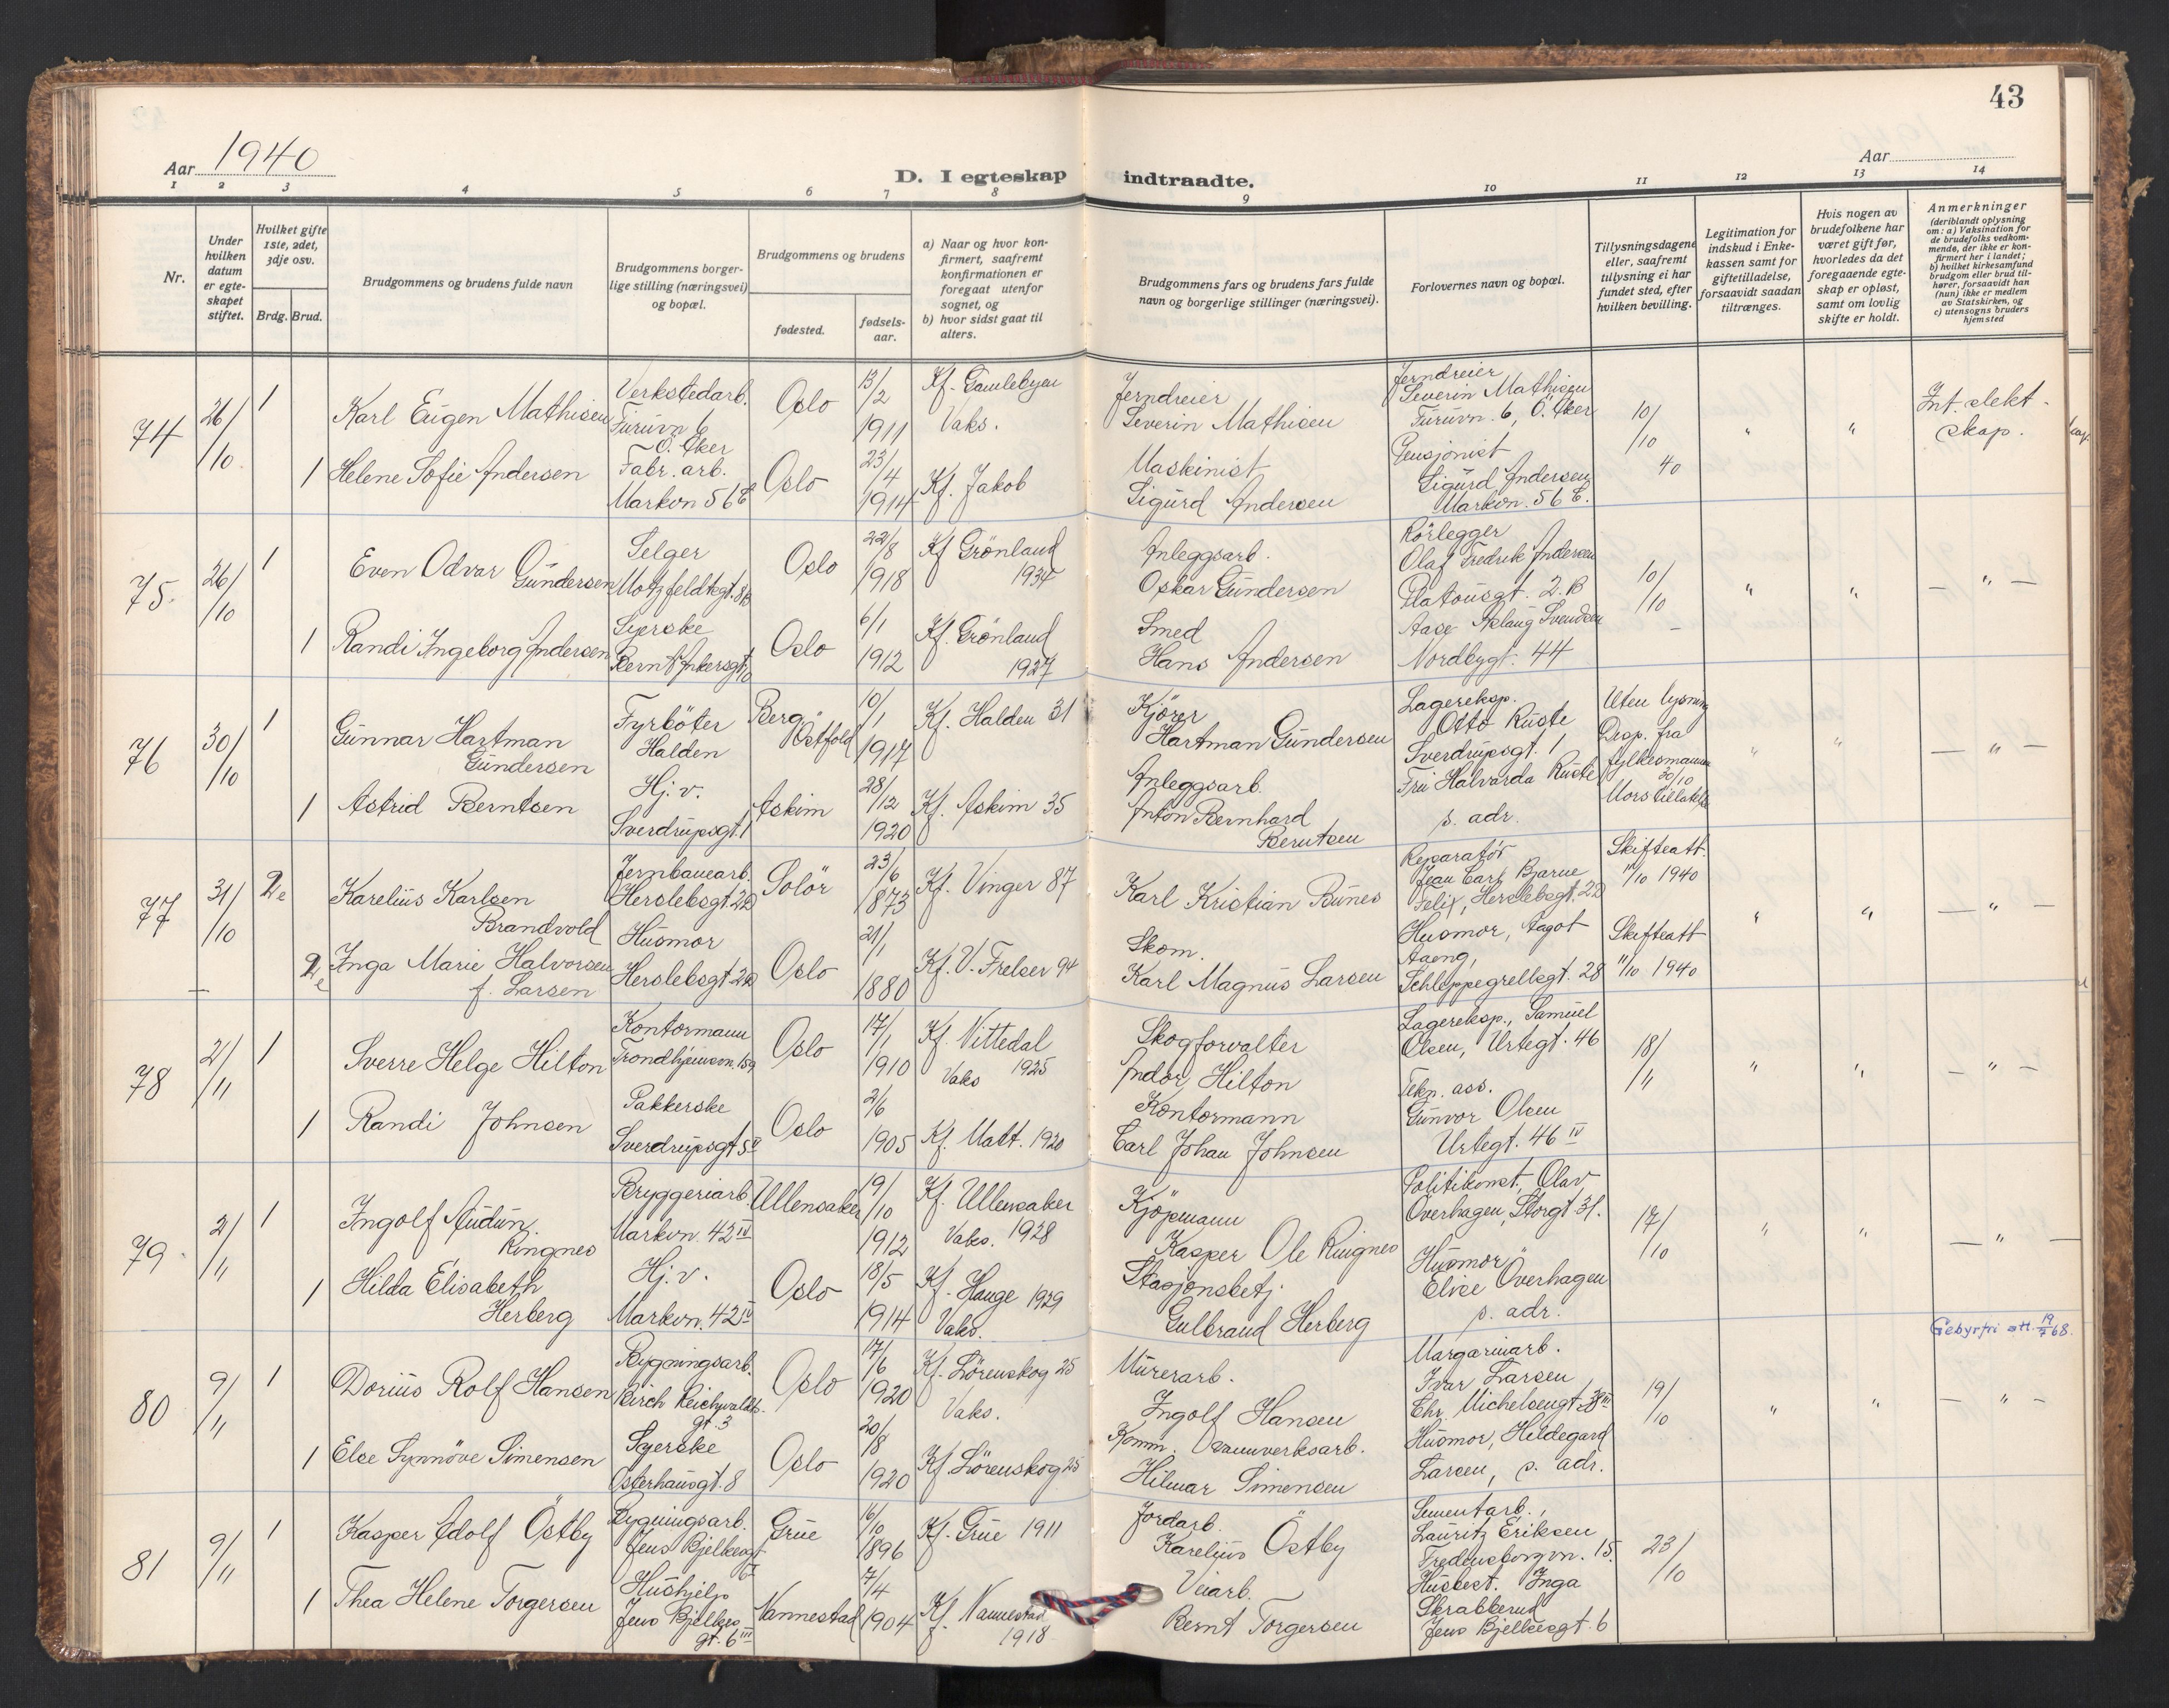 43
Aar 1940
Aar
D. I egteskap indtraadte.
1 2 3 4 5 6 7 8 9 10 11 12 13 14
Nr.
Under hvilken datum er egteskapet stiftet.
Hvilket gifte 1ste, 2det, 3dje osv.
Brdg. Brud.
Brudgommens og brudens fulde navn
Brudgommens borgerlige stilling (næringsvei) og bopæl.
Brudgommens og brudens
fødested.
fødselsaar.
a) Naar og hvor konfirmert, saafremt konfirmationen er foregaat utenfor sognet, og
b) hvor sidst gaat til alters.
Brudgommens fars og brudens fars fulde navn og borgerlige stillinger (næringsvei).
Forlovernes navn og bopæl.
Tillysningsdagene eller, saafremt tillysning ei har fundet sted, efter hvilken bevilling.
Legitimation for indskud i Enkekassen samt for giftetilladelse, forsaavidt saadan tiltrænges.
Hvis nogen av brudefolkene har været gift før, hvorledes da det foregaaende egteskap er opløst, samt om lovlig skifte er holdt.
Anmerkninger (deriblandt oplysning om: a) Vaksination for de brudefolks vedkommende, der ikke er konfirmert her i landet; b) hvilket kirkesamfund brudgom eller brud tilhører, forsaavidt han (hun) ikke er medlem av Statskirken, og c) utensogns bruders hjemsted
74 26/10 1 Karl Eugen Mathisen Verkstedarb. Furuvn 6 Ö. Aker Oslo 13/2 1911 Kf. Gamlebyen Vaks. Jerndreier Severin Mathisen Jerndreier Severin Mathisen Furuvn. 6, Ö. Aker 10/10 40 " " Int. slektskap.
1 Helene Sofie Andersen Fabr. arb. Markvn 56 E Oslo 23/4 1914 Kf. Jakob Maskinist Sigurd Andersen Pensjonist Sigurd Andersen Markvn. 56 E.
75. 26/10 1 Even Odvar Gundersen Selger Motzfeldtsgt. 8B Oslo 22/8 1918 Kf Grönland 1934 Anleggsarb. Oskar Gundersen Rörlegger Olaf Fredrik Andersen Platousgt. 2.B 10/10 - " " — " —
1 Randi Ingeborg Andersen Syerske Bernt Ankersgt. Oslo 6/1 1912 Kf. Grönland 1927 Smed Hans Andersen Aase Aslaug Svendsen Nordbygt. 44
76 30/10 1 Gunnar Hartman Gundersen Fyrböter Halden Berg, Östfold 10/1 1917 Kf. Halden 31 Kjörer Hartman Gundersen Lagereksp. Otto Ruste Sverdrupsgt. 1 Uten lysning Desp. fra fylkesmannen 30/10 " " — " —
1 Astrid Berntsen Hj. v. Sverdrupsgt. 1 Askim 28/12 1920 Kf. Askim 35 Anleggsarb. Anton Bernhard Berntsen Fru Halvarda Ruste s. adr. Mors tillatelse
77 31/10 2e Karelius Karlsen Brandvold Jernbanearb. Herslebsgt. 2D Solör 23/6 1873 Kf. Vinger 87 Karl Kristian Bunes Reparatör Jean Carl Bjarne Felix, Herslebsgt. 2D Skifteatt. 11/10 1940 " " — " —
2e Inga Marie Halvorsen f. Larsen Husmor Herslebsgt 2D Oslo 21/1 1880 Kf. V. Frelser 94 Skom. Karl Magnus Larsen Husmor, Aagot Aaeng, Schleppegrellsgt. 28 Skifteatt 11/10 1940
78 2/11 1 Sverre Helge Hilton Kontormann Trondhjemsvn. 159 Oslo 17/1 1910 Kf. Nittedal Vaks 1925 Skogforvalter Andor Hilton Lagereksp., Samuel Olsen, Urtegt. 46 18/11 " " — " —
1 Randi Johnsen Pakkerske Sverdrupsgt 5 Oslo 2/6 1905 Kf. Matt. 1920 Kontormann Carl Johan Johnsen Tekn. ass. Gunvor Olsen Urtegt. 46 IV
79 2/11 1 Ingolf Audun Ringnes Bryggeriarb. Markvn. 42 IV Ullensaker 19/10 1912 Kf. Ullensaker Vaks. 1928 Kjöpmann Kasper Ole Ringnes Politikonst. Olav Överhagen, Storgt 31. 17/10 " " — " —
1 Hilda Elisabeth Herberg Hj. v. Markvn. 42 IV Oslo 18/5 1914 Kf. Hauge 1929 Vaks. Stasjonsbetj. Gulbrand Herberg Husmor Elise Överhagen s. adr.
Gebyrfri att. 19/7 68.
80 9/11 1 Dorius Rolf Hansen Bygningsarb. Birch Reichwaldts gt. 3 Oslo 17/6 1920 Kf. Lörenskog 25 Vaks. Murerarb. Ingolf Hansen Margarinarb. Ivar Larsen Chr. Michelsensgt. 38 III 19/10 " " — " —
1 Else Synnöve Simensen Syerske Osterhausgt. 8 Oslo 20/8 1920 Kf. Lörenskog 25 Komm. vannverksarb. Hilmar Simensen Husmor, Hildegard Larsen, s. adr.
81 9/11 1 Kasper Adolf Östby Bygningsarb. Jens Bjelkesgt. Grue 16/10 1896 Kf. Grue 1911 Jordarb. Karelius Östby Sementarb., Lauritz Eriksen Fredensborgvn. 15. 23/10
1 Thea Helene Torgersen Hushjelp Jens Bjelkesgt. 6 III Nannestad 7/4 1904 Kf. Nannestad 1918 Veiarb. Bernt Torgersen Husbest. Inga Skrabberud Jens Bjelkesgt. 6